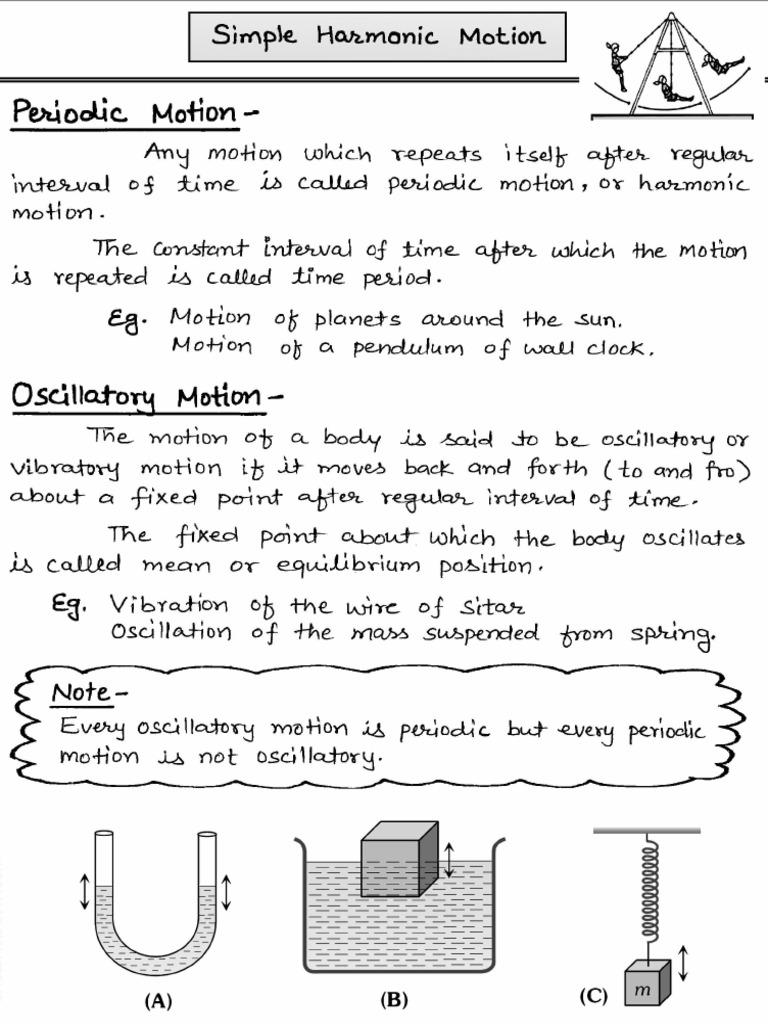 Simple Harmonic Motion
Periodic Motion -
Any motion which repeats itself after regular
interval of time is called periodic motion, or harmonic
motion.
The constant interval of time after which the motion
is repeated is called time period.
Eg. Motion of planets around the sun.
Motion of a pendulum of wall clock.
Oscillatory Motion -
The motion of a body is said to be oscillatory or
vibratory motion if it moves back and forth (to and fro)
about a fixed point after regular interval of time.
The fixed point about which the body oscillates
is called mean or equilibrium position.
Eg. Vibration of the wire of Sitar
Oscillation of the mass suspended from spring.
Note -
Every oscillatory motion is periodic but every periodic
motion is not oscillatory.
m
(A)
(B)
(C)